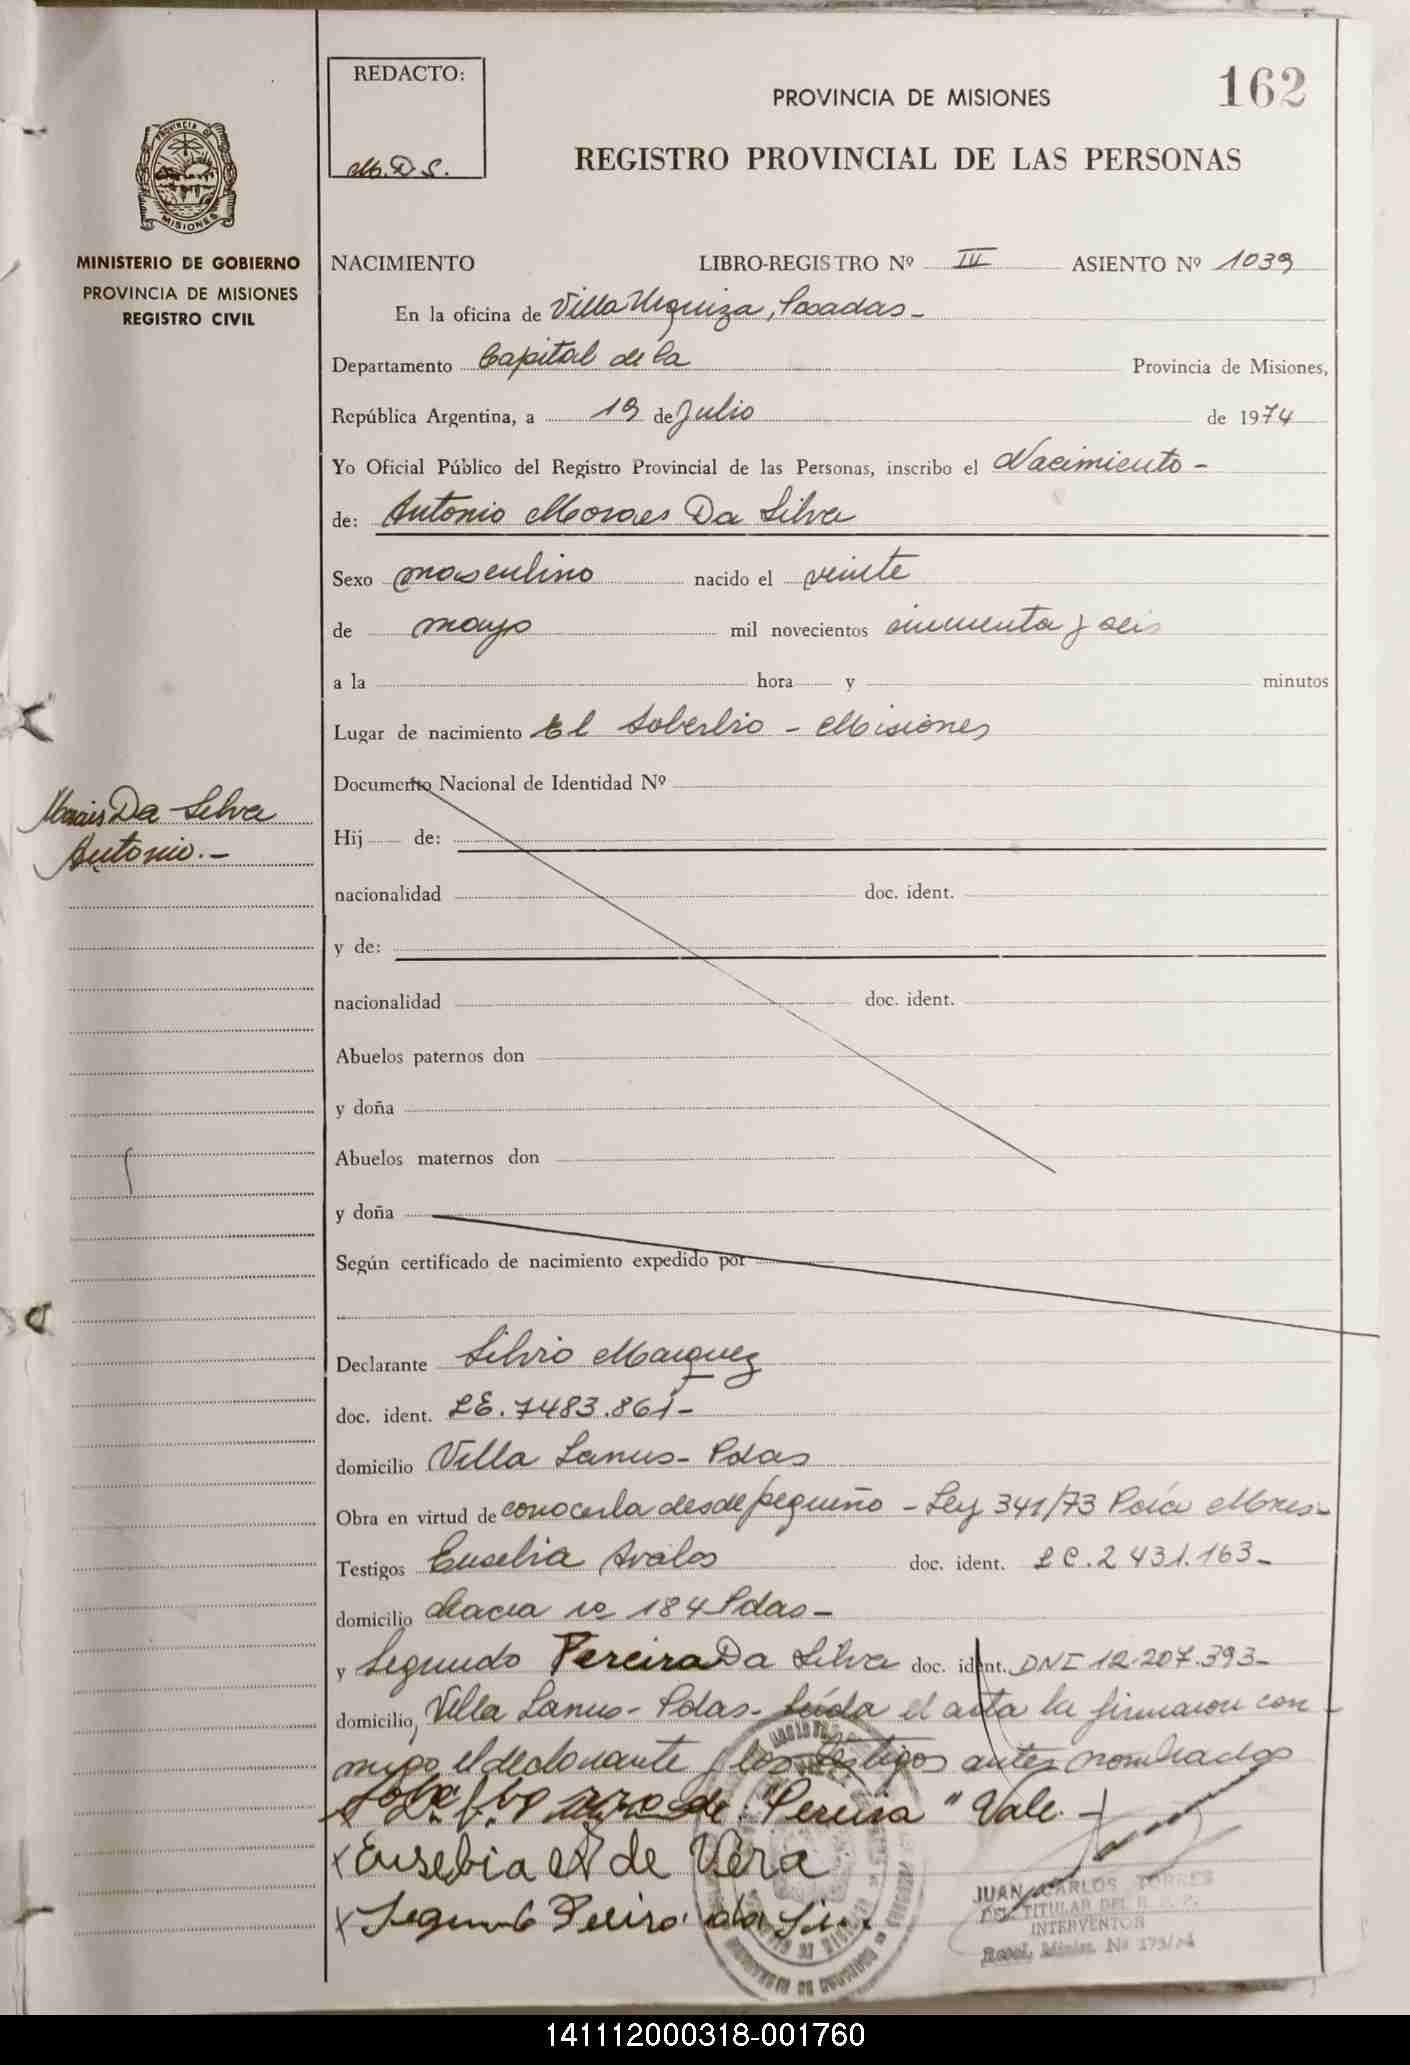 REDACTO:
M. D. S.
PROVINCIA DE MISIONES
162
REGISTRO PROVINCIAL DE LAS PERSONAS
PROVINCIA DE
MISIONES
MINISTERIO DE GOBIERNO
PROVINCIA DE MISIONES
REGISTRO CIVIL
NACIMIENTO LIBRO-REGISTRO Nº III ASIENTO Nº 1039
En la oficina de Villa Urquiza, Posadas -
Departamento Capital de la Provincia de Misiones,
República Argentina, a 19 de Julio de 1974
Yo Oficial Público del Registro Provincial de las Personas, inscribo el Nacimiento -
de: Antonio Moraes Da Silva
Sexo masculino nacido el veinte
de mayo mil novecientos cincuenta y seis
a la hora y minutos
Lugar de nacimiento El Soberbio - Misiones
Documento Nacional de Identidad Nº
Morais Da Silva
Antonio.-
Hij de:
nacionalidad doc. ident.
y de:
nacionalidad doc. ident.
Abuelos paternos don
y doña
Abuelos maternos don
y doña
Según certificado de nacimiento expedido por
Declarante Silvio Marquez
doc. ident. LE. 7483.861-
domicilio Villa Lanus - Pdas
Obra en virtud de conocerla desde pequeño - Ley 341/73 Pcia Mnes-
Testigos Eusebia Avalos doc. ident. LC. 2 431.163-
domicilio Chacra no 184 Pdas-
y Segundo Pereira Da Silva doc. ident. DNI 12.207.393-
domicilio, Villa Lanus - Pdas - Leída el acta la firmaron con-
migo el declarante y los testigos antes nombrados
de "Pereira" Vale.-
x Eusebia A de Vera
x Segundo Pereira da Sil
JUAN CARLOS TORRES
DEL. TITULAR DEL R. P. P.
INTERVENTOR
Resol. Minist. Nº 175/74
141112000318-001760